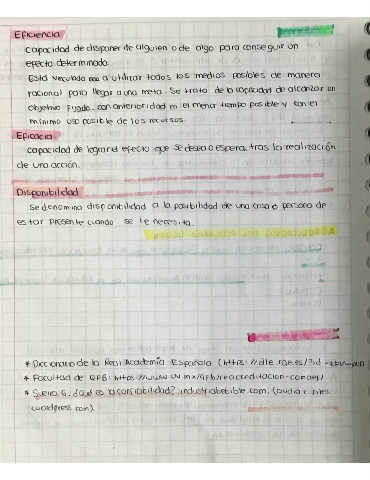 Eficiencia
capacidad de disponer de alguien o de algo para conseguir un
efecto determinado.
Está vinculada a utilizar todos los medios posibles de manera
racional para llegar a una meta. Se trata de la capacidad de alcanzar un
objetivo fijado con anterioridad en el menor tiempo posible y con el
mínimo uso posible de los recursos.
Eficacia
capacidad de lograr el efecto que se desea o espera, tras la realización
de una acción.
Disponibilidad
Se denomina disponibilidad a la posibilidad de una cosa o persona de
estar presente cuando se le necesita.
* Diccionario de la Real Academia Española (https://dle.rae.es/?id
* Facultad de QFB: https://www.uv.mx/qfb/
* Sueiro, G. ¿Qué es la confiabilidad?
wordpress.com).